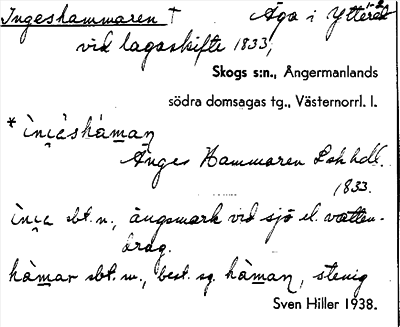 Ingeshammaren † Äga i Ytterå
vid lagaskifte 1833,
Skogs s:n., Ångermanlands
södra domsagas tg., Västernorrl. l.
* ìŋɩ̯èshàman̠
Änges Hammaren Lsk hdl.
1833.
sbt. n., ängsmark vid sjö el. vatten-
drag.
hàmar sbt. m., best. sg. hàman, stenig
Sven Hiller 1938.